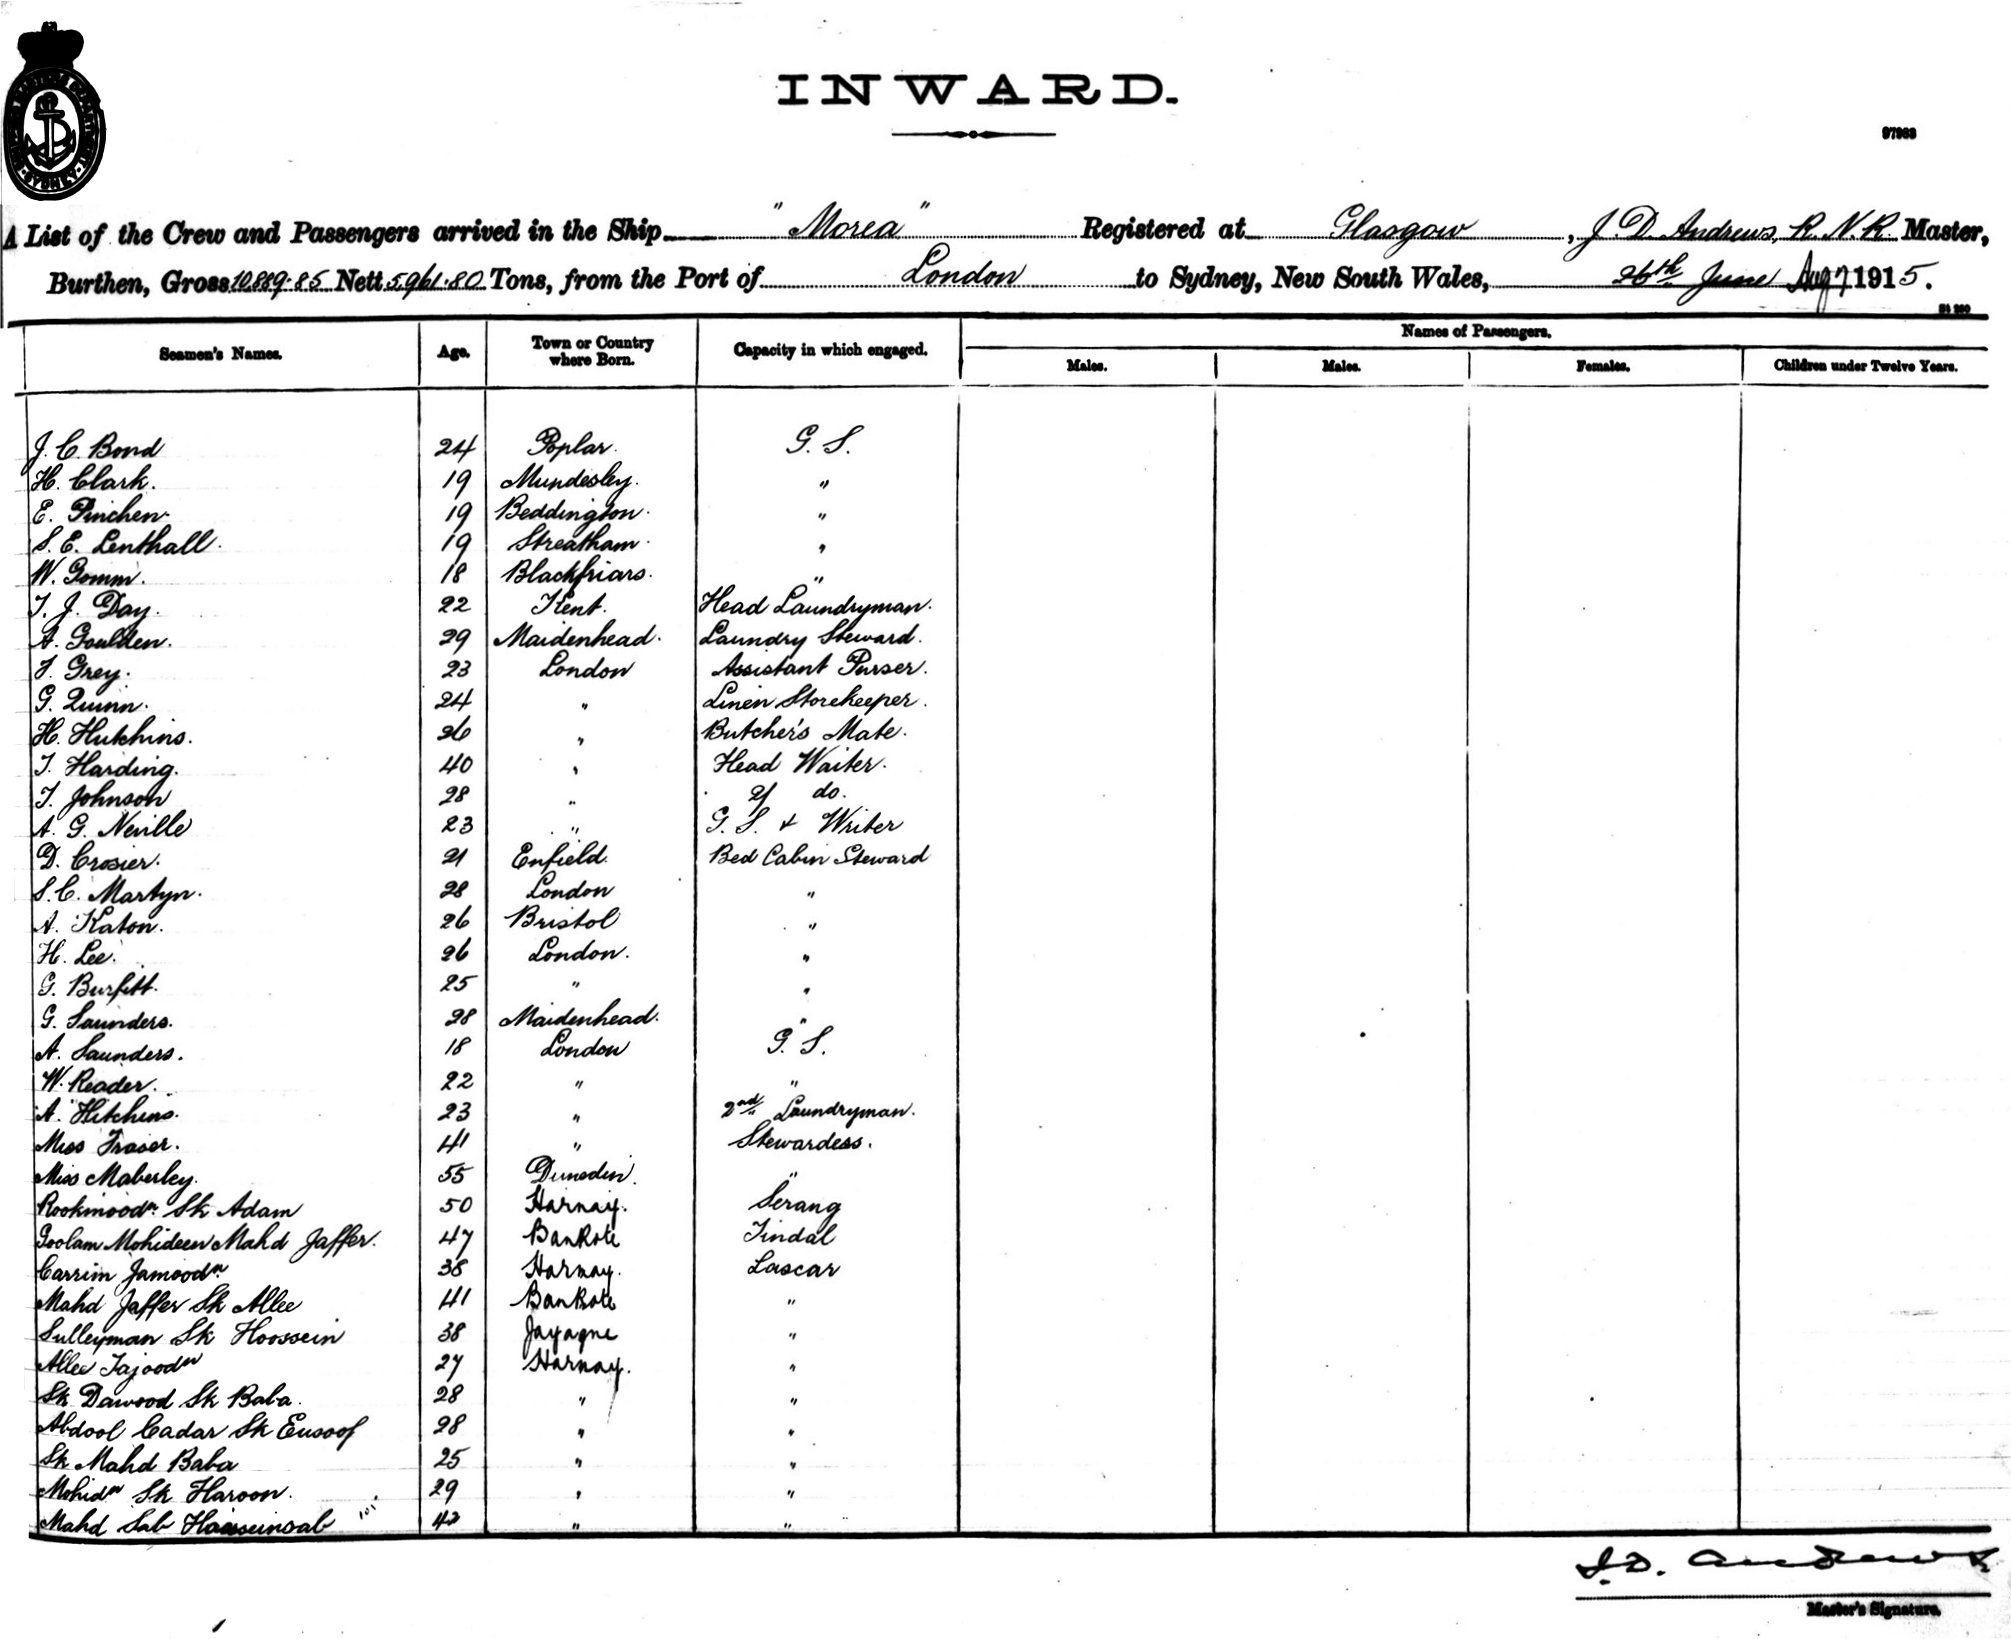 INWARD.
97963
A List of the Crew and Passengers arrived in the Ship "Morea" Registered at Glasgow, J. D. Andrews, R. N. R. Master,
Burthen, Gross 10,889.85 Nett 5,961.80 Tons, from the Port of London to Sydney, New South Wales, 26th June Aug 7 1915.
Names of Passengers.
Seamen's Names. Age. Town or Country where Born. Capacity in which engaged. Males. Males. Females. Children under Twelve Years.
J. C. Bond 24 Poplar. G. S.
H. Clark. 19 Mundesley. "
E. Pinchen. 19 Beddington. "
S. E. Lenthall. 19 Streatham. "
W. Gomm. 18 Blackfriars. "
T. J. Day. 22 Kent. Head Laundryman.
A. Goulden. 29 Maidenhead. Laundry Steward.
F. Grey. 23 London Assistant Purser.
G. Quinn. 24 " Linen Storekeeper.
H. Hutchins. 26 " Butcher's Mate.
T. Harding. 40 " Head Waiter.
T. Johnson 28 " do.
A. G. Neville 23 " G. S. & Writer
D. Crosier. 21 Enfield. Bed Cabin Steward
S. C. Martyn. 28 London "
A. Katon. 26 Bristol "
H. Lee. 26 London. "
G. Burfitt. 25 " "
G. Saunders. 28 Maidenhead. "
A. Saunders. 18 London G. S.
W. Reader. 22 " "
A. Hitchins. 23 " 2nd Laundryman.
Miss Fraser. 41 " Stewardess.
Miss Maberley. 55 Dunedin. "
Rookmoodn Sk Adam 50 Harnay. Serang
Goolam Mohideen Mahd Jaffer. 47 Bankote Tindal
Carrim Jamoodn 38 Harnay. Lascar
Mahd Jaffer Sk Allee 41 Bankote "
Sulleyman Sk Hoossein 38 Jayagne "
Allee Tajoodn 27 Harnay. "
Sk Dawood Sk Baba. 28 " "
Abdool Cadar Sk Eusoof 28 " "
Sk Mahd Baba 25 " "
Mohidn Sk Haroon. 29 " "
Mahd Sab Hasseinsab 42 " "
J. D. Andrews
Master's Signature.